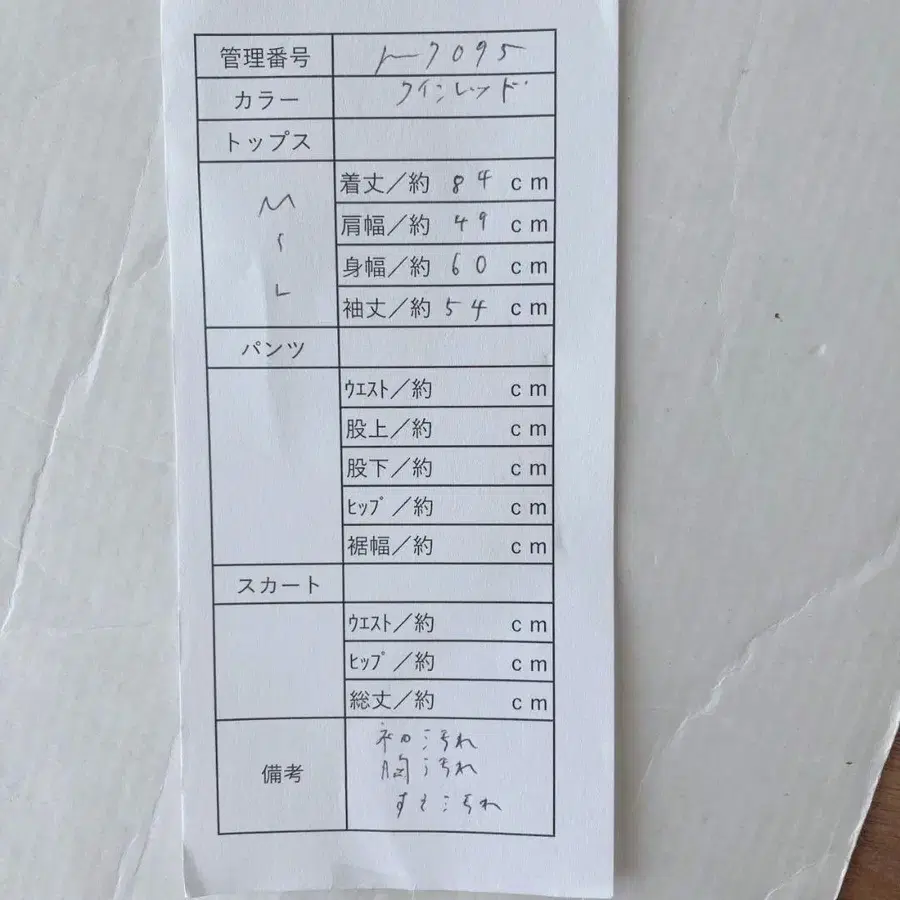 管理番号 ト7095
カラー ワインレッド
トップス
M
〜
L
着丈／約 84 cm
肩幅／約 49 cm
身幅／約 60 cm
袖丈／約 54 cm
パンツ
ｳｴｽﾄ／約 cm
股上／約 cm
股下／約 cm
ﾋｯﾌﾟ／約 cm
裾幅／約 cm
スカート
ｳｴｽﾄ／約 cm
ﾋｯﾌﾟ／約 cm
総丈／約 cm
備考
袖汚れ
胸汚れ
すそ汚れ